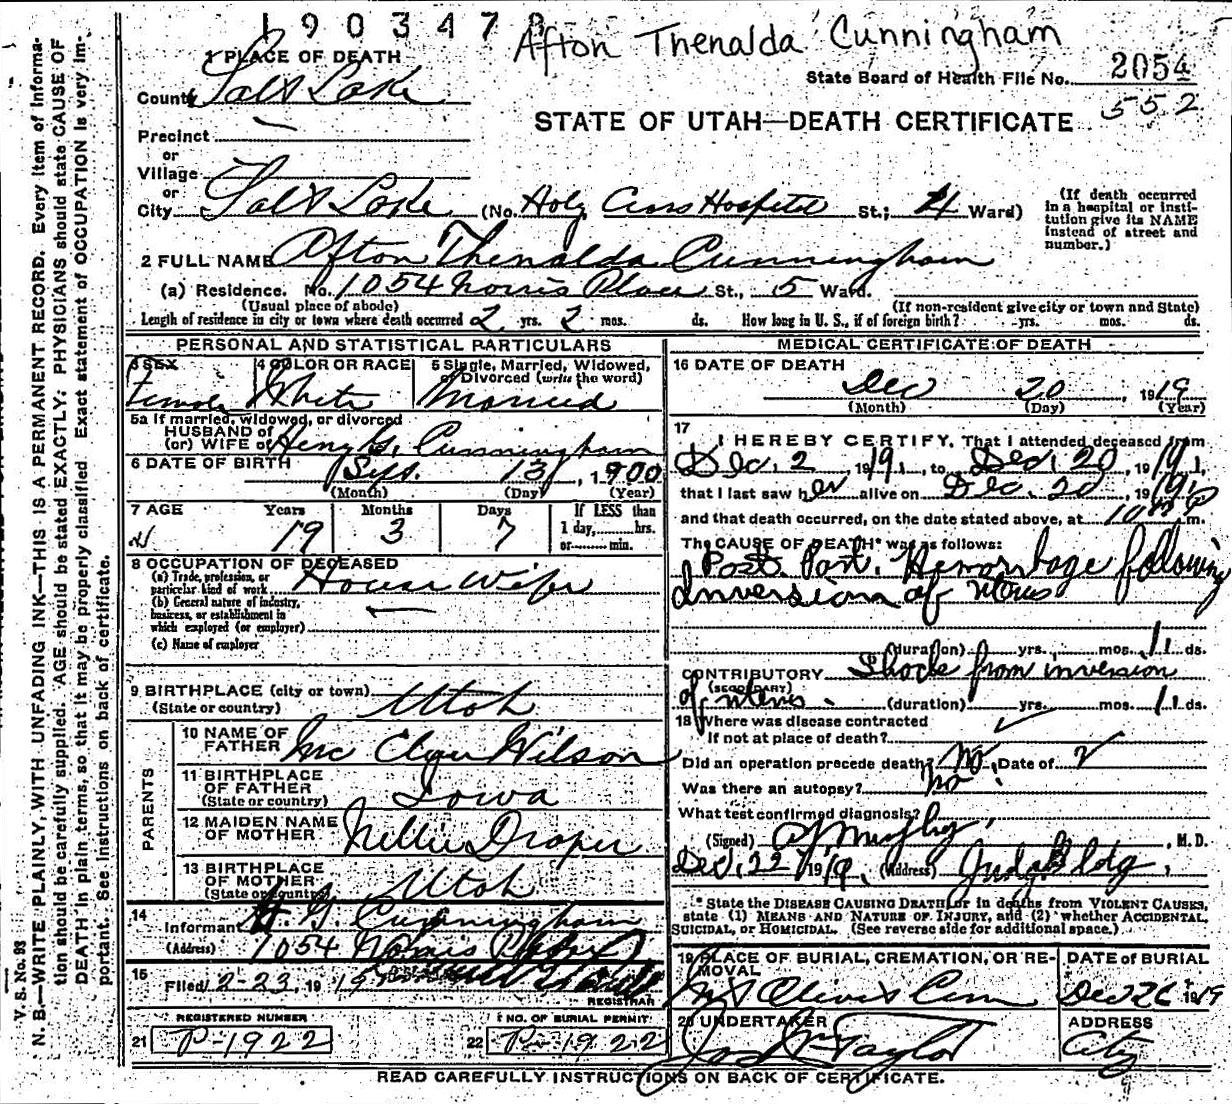 1903478
Afton Thenalda Cunningham
1 PLACE OF DEATH
State Board of Health File No. 2054
County Salt Lake
552
STATE OF UTAH—DEATH CERTIFICATE
Precinct
or
Village
or
City Salt Lake (No. Holy Cross Hospital St.; 4 Ward)
(If death occurred in a hospital or institution give its NAME instead of street and number.)
2 FULL NAME Afton Thenalda Cunningham
(a) Residence. No. 1054 Norris Place St., 5 Ward.
(Usual place of abode) (If non-resident give city or town and State)
Length of residence in city or town where death occurred 2 yrs. 2 mos. ds. How long in U. S., if of foreign birth? yrs. mos. ds.
PERSONAL AND STATISTICAL PARTICULARS
3 SEX Female
4 COLOR OR RACE White
5 Single, Married, Widowed, or Divorced (write the word) Married
5a If married, widowed, or divorced
HUSBAND of
(or) WIFE of Henry G. Cunningham
6 DATE OF BIRTH Sept. 13, 1900
(Month) (Day) (Year)
7 AGE Years Months Days If LESS than
19 3 7 1 day, hrs.
or min.
8 OCCUPATION OF DECEASED
(a) Trade, profession, or
particular kind of work House Wife
(b) General nature of industry,
business, or establishment in
which employed (or employer)
(c) Name of employer
9 BIRTHPLACE (city or town)
(State or country) Utah
PARENTS
10 NAME OF
FATHER Wilson
11 BIRTHPLACE
OF FATHER
(State or country) Iowa
12 MAIDEN NAME
OF MOTHER Nellie Draper
13 BIRTHPLACE
OF MOTHER
(State or country) Utah
14
Informant H G Cunningham
(Address) 1054 Norris Place
15
Filed 12-23, 1919
REGISTRAR
REGISTERED NUMBER
21 P-1922
NO. OF BURIAL PERMIT
22 P-1922
MEDICAL CERTIFICATE OF DEATH
16 DATE OF DEATH
Dec 20, 1919
(Month) (Day) (Year)
17
I HEREBY CERTIFY, That I attended deceased from
Dec. 2, 1919, to Dec. 20, 1919,
that I last saw her alive on Dec. 20, 1919
and that death occurred, on the date stated above, at 10 m.
The CAUSE OF DEATH* was as follows:
Post. Part. Hemorrhage following
Inversion of uterus
(duration) yrs. mos. 1 ds.
CONTRIBUTORY Shock from inversion
(SECONDARY) of uterus.
(duration) yrs. mos. 1 ds.
18 Where was disease contracted
If not at place of death?
Did an operation precede death? No Date of
Was there an autopsy? No
What test confirmed diagnosis?
(Signed) A J Murphy, M. D.
Dec. 22, 1919. (Address) Judge Bldg,
* State the DISEASE CAUSING DEATH, or in deaths from VIOLENT CAUSES,
state (1) MEANS AND NATURE OF INJURY, and (2) whether ACCIDENTAL,
SUICIDAL, or HOMICIDAL. (See reverse side for additional space.)
19 PLACE OF BURIAL, CREMATION, OR REMOVAL
Mt Olivet Cem
DATE OF BURIAL
Dec 26 1919
20 UNDERTAKER
Jos Wm Taylor
ADDRESS
City
READ CAREFULLY INSTRUCTIONS ON BACK OF CERTIFICATE.
V. S. No. 93
N. B.—WRITE PLAINLY, WITH UNFADING INK—THIS IS A PERMANENT RECORD. Every item of information should be carefully supplied. AGE should be stated EXACTLY. PHYSICIANS should state CAUSE OF DEATH in plain terms, so that it may be properly classified. Exact statement of OCCUPATION is very important. See instructions on back of certificate.